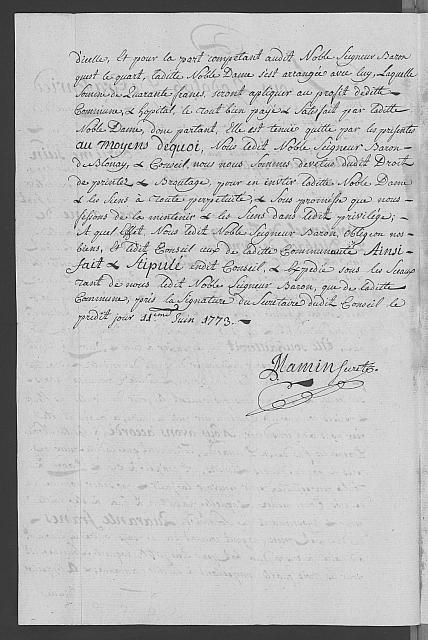 d'icelle, et pour la part compétant audit Noble Seigneur Baron
qu'est le quart, laditte Noble Dame s'est arrangée avec luy, Laquelle
Somme de Quarante francs, seront apliquer au profit deditte
Commune, & hopital, le tout bien payé & satisfait par laditte
Noble Dame, donc partant, Elle est tenue quitte par les présentes
au moyens dequoi, Nous ledit Noble Seigneur Baron
de Blonay, & Conseil, nous nous sommes devetus dudit Droit
de printez & Broutage, pour en invétir laditte Noble Dame
& les Siens à toute perpetuité, & sous promesse que nous
faisons de la maintenir & les Siens dans ledit privilège;
A quel effet, Nous ledit Noble Seigneur Baron, obligeon nos
biens, & ledit Conseil ceux de laditte Communauté, Ainsi
fait & Stipulé en dit Conseil, & Expedié sous les Sceaux
tant de nous ledit Noble Seigneur Baron, que de laditte
Commune, près la Signature du Secretaire dudit Conseil le
predit jour 11ème Juin 1773.
Mamin Secrét.